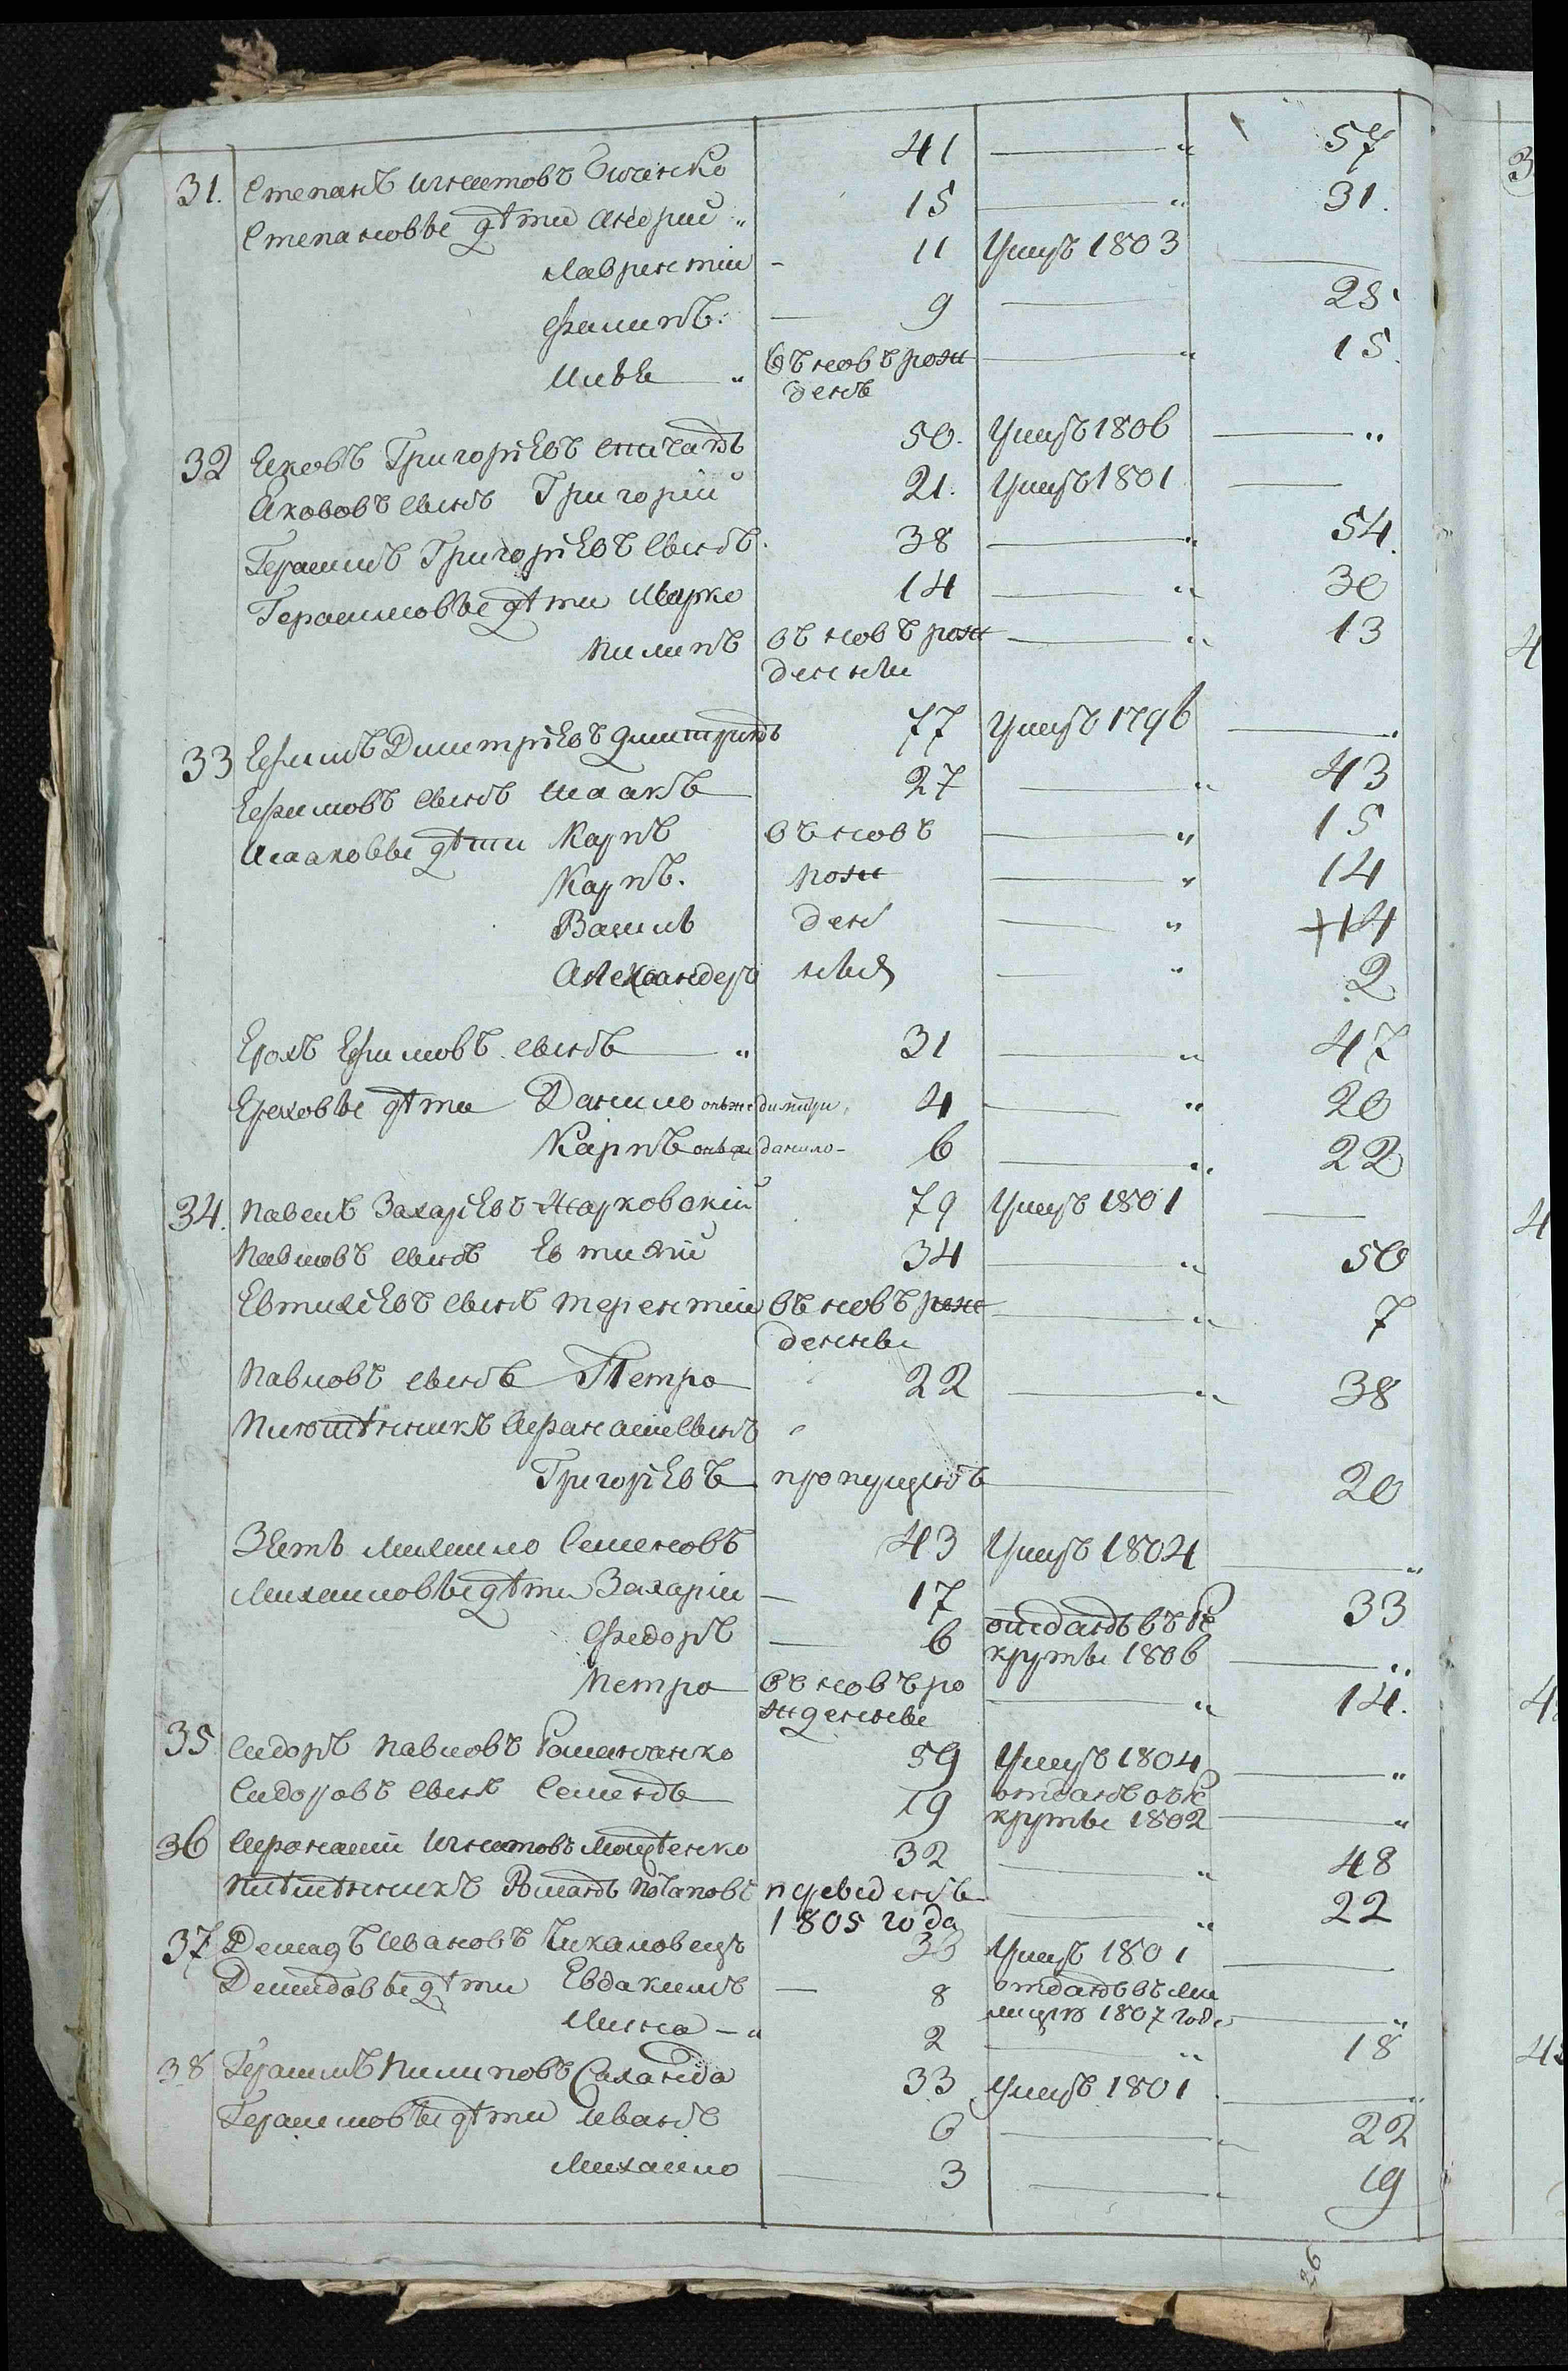 31. Степанъ Игнатовъ 41 — „ 57
Степановы дѣти Андрий „ 15 — „ 31.
Лаврентий - 11 Умеръ 1803 —
Филипъ. — 9 — 25.
Илья „ въ новѣ рож — „ 15.
денъ
32 Яковъ Григорiевъ 50. Умеръ 1806 — „
Якововъ сынъ Григорий 21. Умеръ 1801 —
Герасимъ Григорiевъ сынъ. 38 — „ 54.
Герасимовы дѣти Марко 14 — „ 30
Пилипъ въ новѣ рож — „ 13
денны
33 Ефимъ Дмитрiевъ 77 Умеръ 1796 —
Ефимовъ сынъ Исаакъ 27 — „ 43
Исааковы дѣти Карпъ въ новѣ — „ 15
Карпъ. рож — „ 14
Василь ден — „ 14
Александеръ ныя — „ 2
Ерохъ Ефимовъ сынъ — „ 31 — „ 47
Ероховы дѣти Данило онъже димитри, 4 — „ 20
Карпъ онъже данило - 6 — „ 22
34. Павелъ Захарiевъ Жарковский 79 Умеръ 1801 —
Павловъ сынъ Евтихий 34 — „ 50
Евтихiевъ сынъ Терентий въ новѣ рож — „ 7
денны
Павловъ сынъ Петро 22 — „ 38
Афанасий сынъ
Григорiевъ пропущенъ — 20
Зять Михайло Семеновъ 43 Умеръ 1804 — „
Михайловы дѣти Захарiй — 17 33
Федоръ — 6 отданъ въ ре
круты 1806 — „
Петро въ новѣ ро — „ 14.
жденные
35 Сидоръ Павловъ Романенко 59 Умеръ 1804 — „
Сидоровъ сынъ Семенъ 19 отданъ въ ре
круты 1802 — „
36 Афанасий Игнатовъ 32 — „ 48
Романъ Потаповъ переведенъ — „ 22
1805 года
37 Демидъ Ивановъ 33 Умеръ 1801 —
Демидовы дѣти Евдакимъ — 8 отданъ въ ми
лицiю 1807 года — „
Мина — „ 2 — „ 18
38 Герасимъ Пилиповъ Саланда 33 Умеръ 1801 — „
Герасимовы дѣти Иванъ 6 — „ 22
Михайло — 3 — „ 19
36